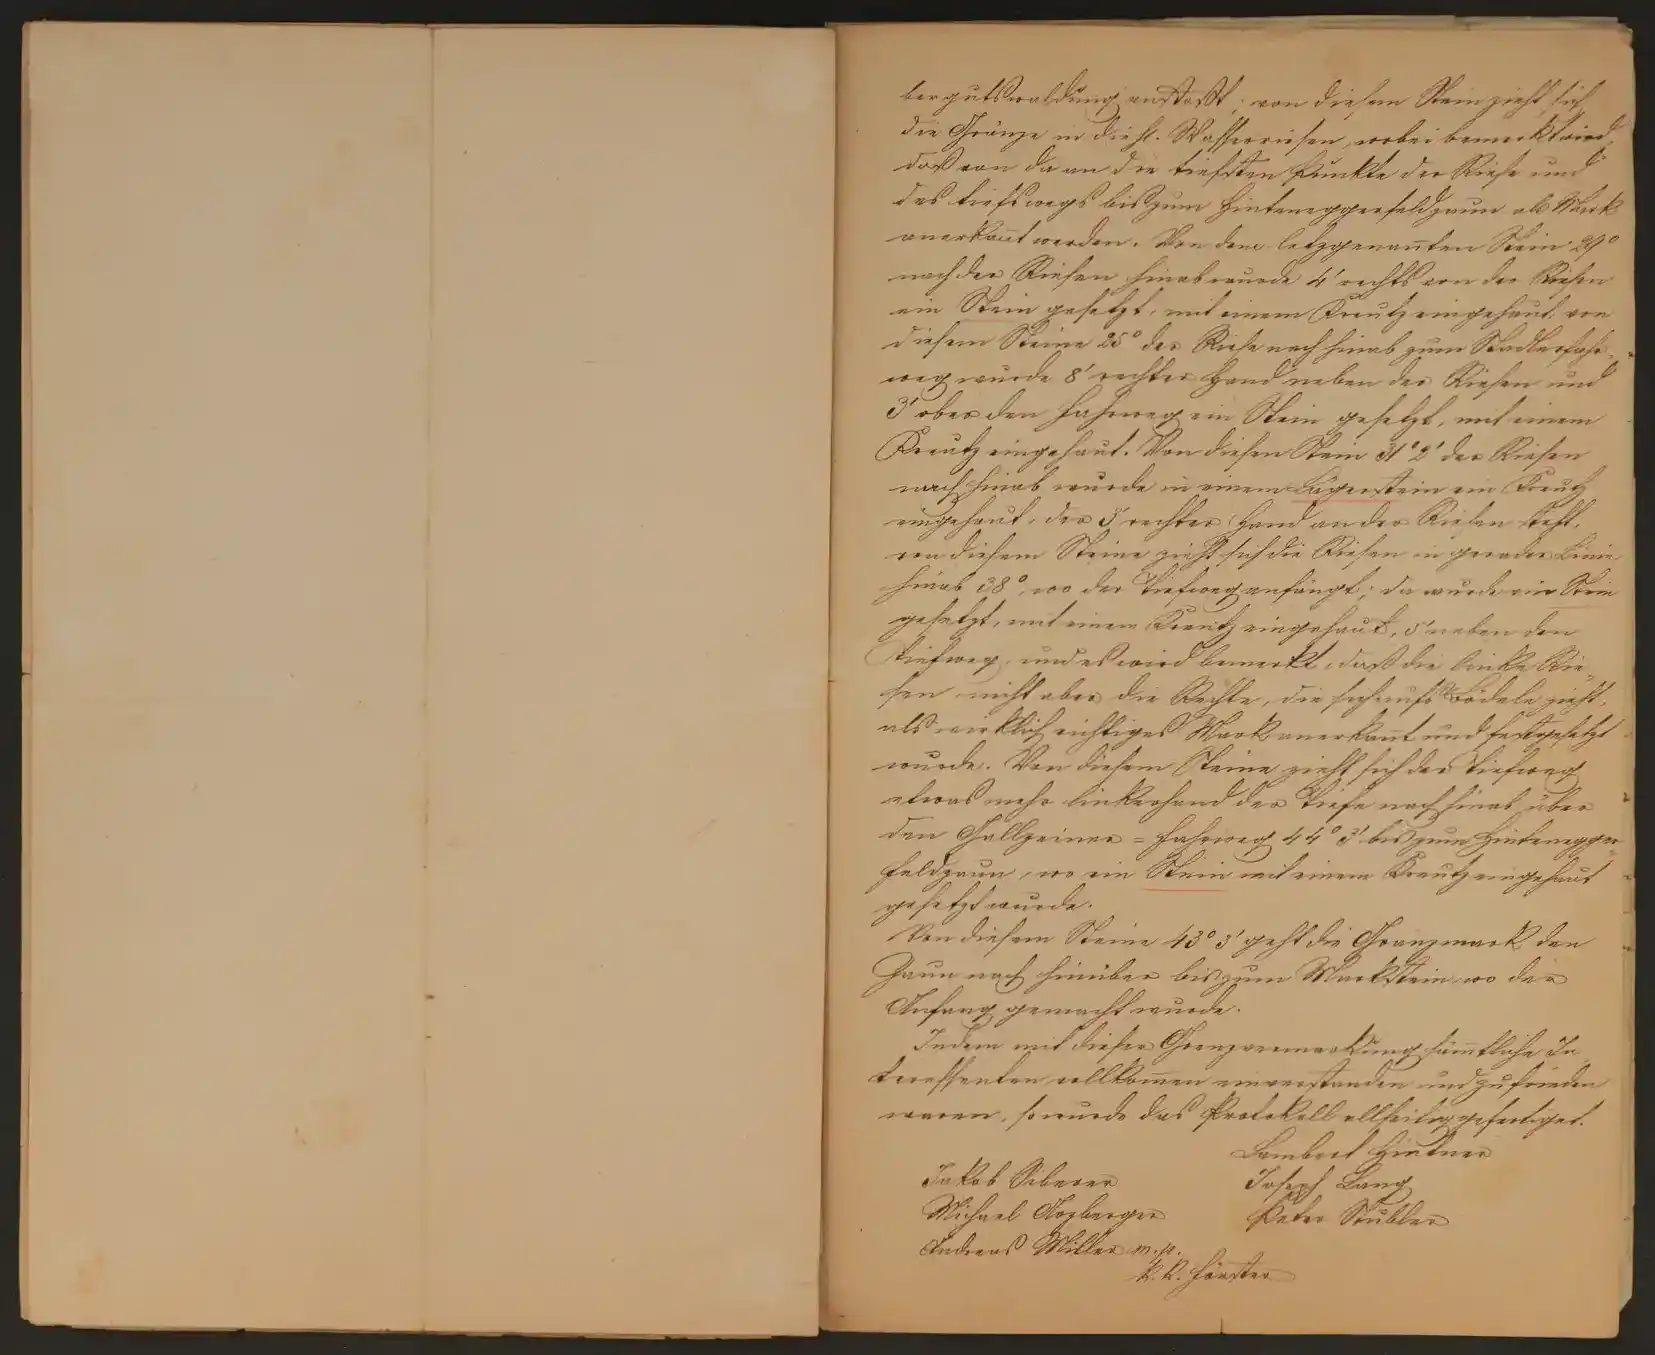 bergutswaldung anstoßt; von diesem Stein zieht sich
die Gränze in die Wasserriesen, wobei bemerkt wird,
daß von da an die tiefsten Punkte der Riese und
des Tiefwegs bis zum Hinteneggerfeldzaun als Mark
anerkant werden. Von dem letzgenanten Stein 29°
nach der Riesen hinab wurde 4' rechts von der Riesen
ein Stein gesetzt, mit einem Kreutz eingehaut, von
diesem Steine 25° der Riese nach hinab zum Stadlerfahr-
weg wurde 8' rechter Hand neben der Riesen und
3' ober den Fahrweg ein Stein gesetzt, mit einem
Kreutz eingehaut. Von diesen Stein 31° 2' der Riesen
nach hinab wurde in einem Lägerstein ein Kreutz
eingehaut, der 3' rechter Hand an der Riesen steht,
von diesem Steine zieht sich die Riesen in gerader Linie
hinab 38°, wo der Tiefweg anfängt; da wurde ein Stein
gesetzt, mit einem Kreutz eingehaut, 3' neben den
Tiefweg, und es wird bemerkt, daß die linke Rie-
sen nicht aber die Rechte, die sich aufs Bödele zieht,
als wirklich richtiges Mark anerkant und festgesetzt
wurde. Von diesem Steine zieht sich der Tiefweg
etwas mehr linkerhand der Tiefe nach hinab über
den Gallzeiner=Fahrweg 44° 3' bis zum Hintenegger-
feldzaun, wo ein Stein mit einem Kreutz eingehaut
gesetzt wurde.
Von diesem Steine 43° 3' geht die Granzmark den
Zaun nach hinüber bis zum Markstein, wo der
Anfang gemacht wurde.
Indem mit dieser Grenzvermarkung sämtliche In-
teressenten vollkomen einverstanden und zufrieden
waren, so wurde das Protokoll allseitig gefertiget.
Lambert Hintner
Jakob Siberer Joseph Lang
Michael Arzberger Peter Stubler
Andreas Miller m. p.
k. k. Förster